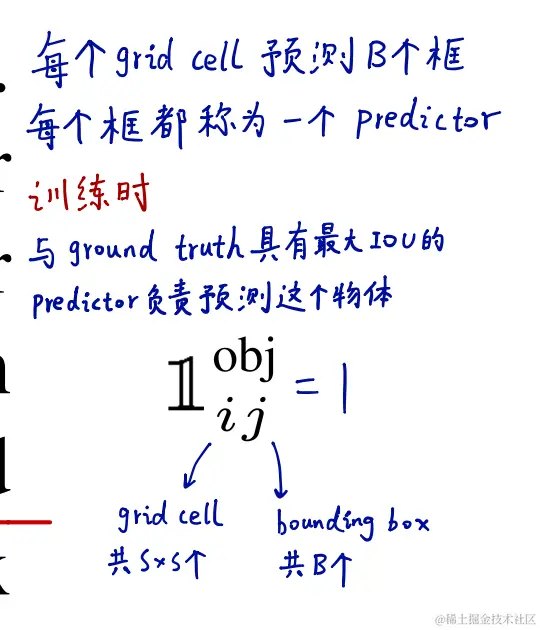 每个grid cell 预测B个框
每个框都称为一个 predictor
训练时
与 ground truth具有最大IOU的
predictor负责预测这个物体
𝟙 obj ij = 1
grid cell
共S×S个
bounding box
共B个
@稀土掘金技术社区